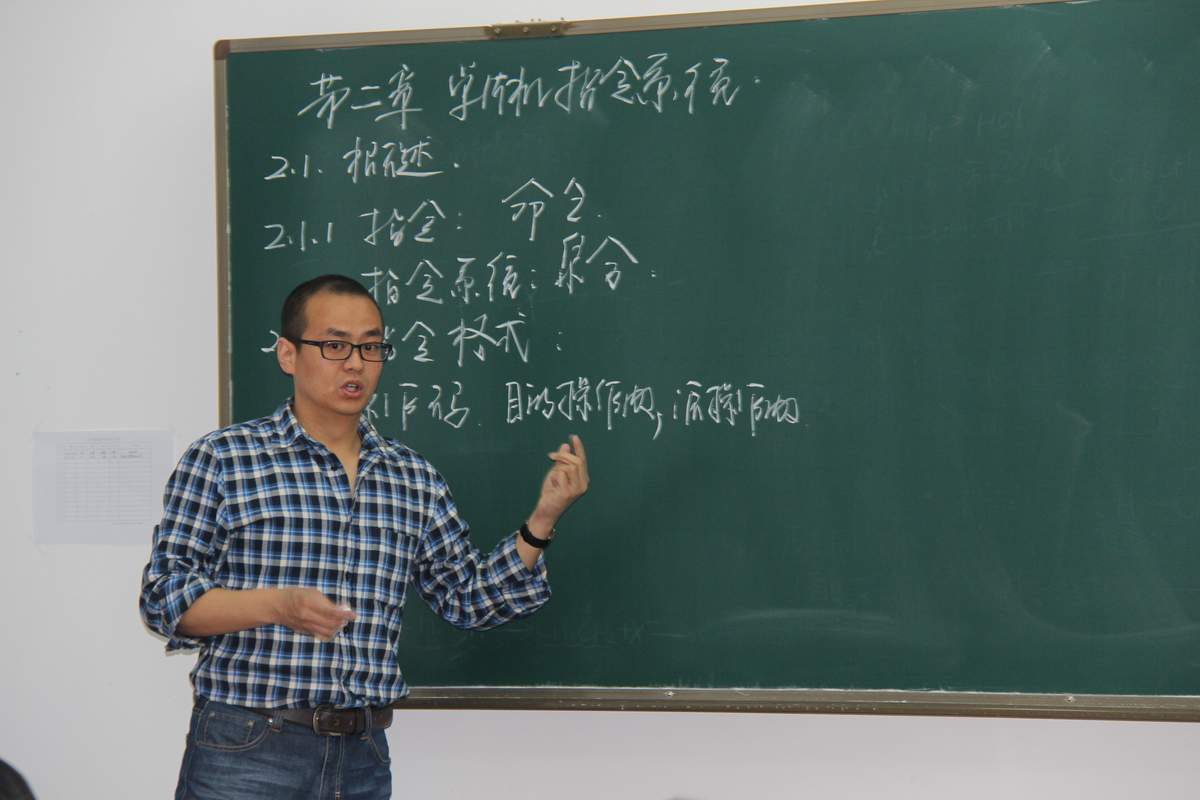 第二章 单片机指令系统:
2.1. 概述.
2.1.1 指令: 命令.
指令系统: 集合.
指令格式:
操作码. 目的操作数, 源操作数